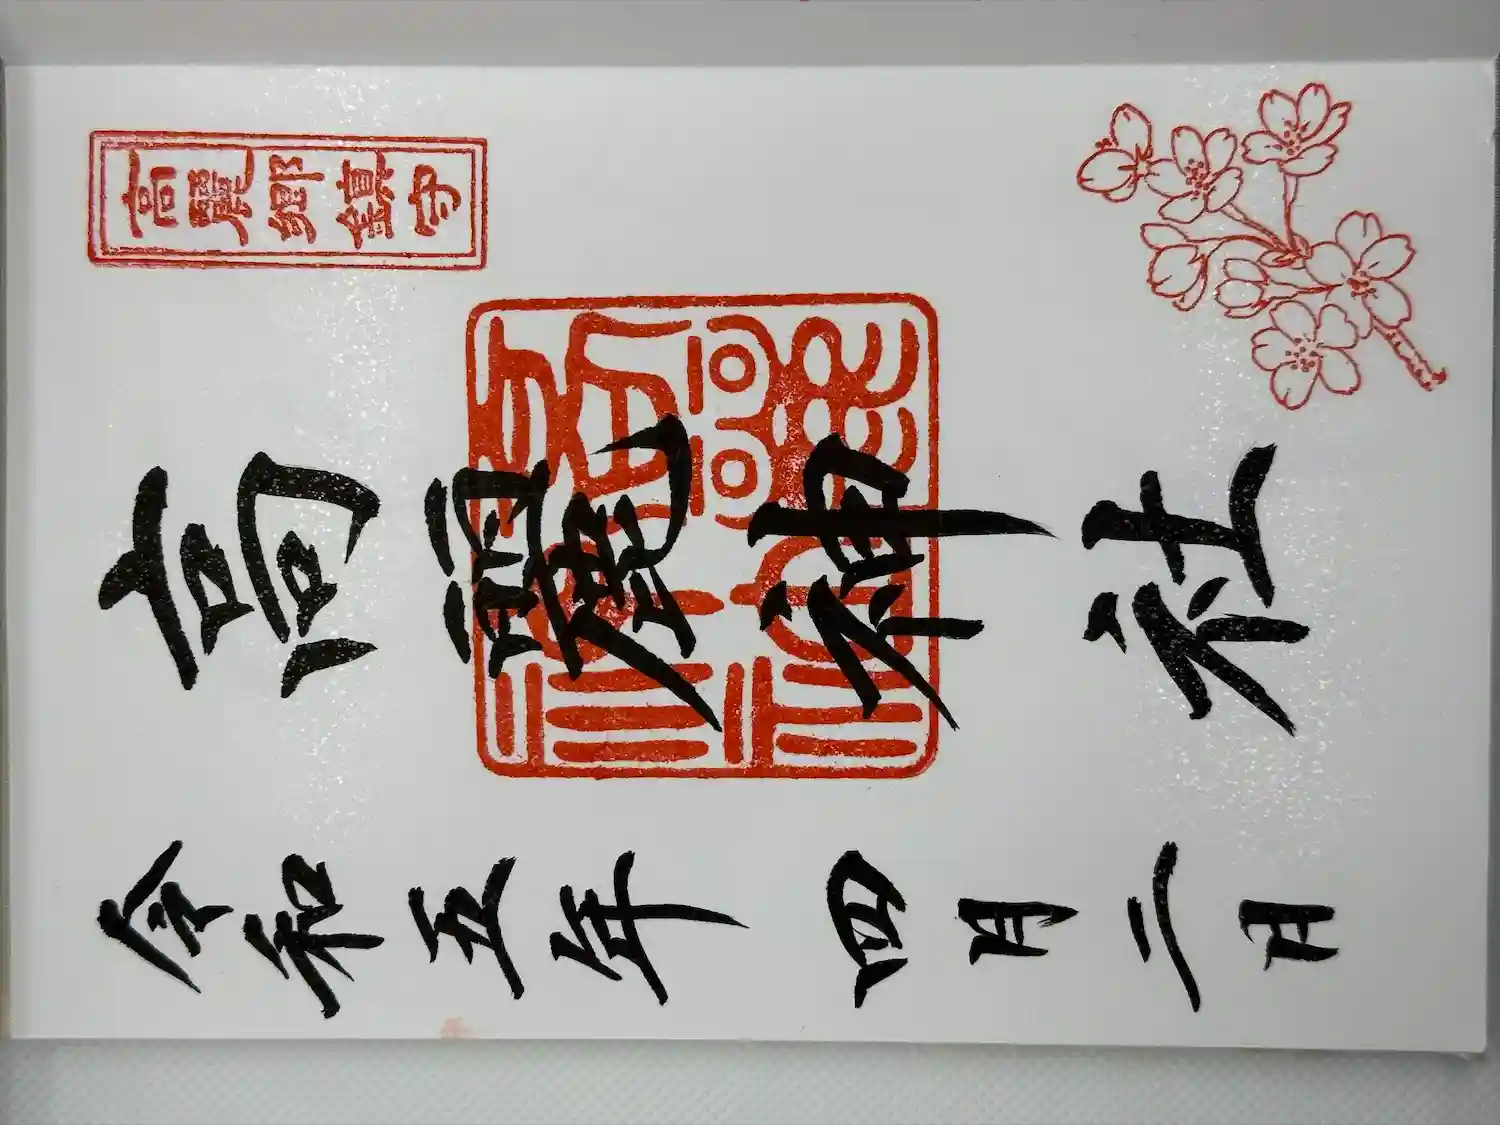 高麗郷鎮守
高麗神社
令和五年四月二日